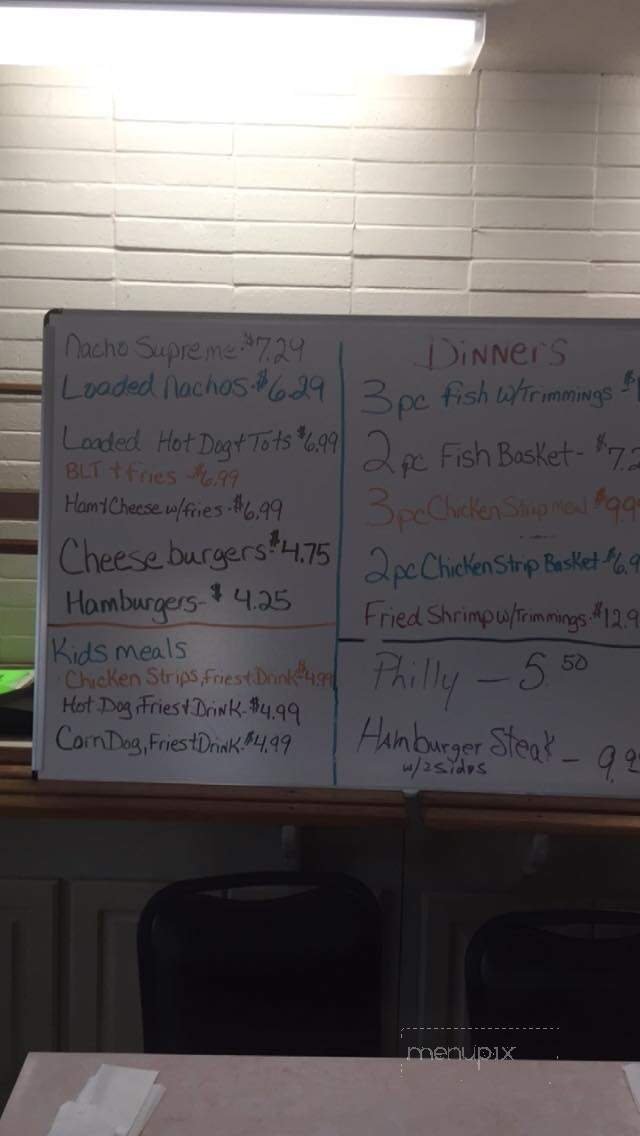 Nacho Supreme-$7.29
Loaded Nachos-$6.29
Loaded Hot Dog + Tots $6.99
BLT + fries -$6.99
Ham + Cheese w/fries-$6.99
Cheeseburgers-$4.75
Hamburgers-$ 4.25
Kids meals
Chicken Strips, Fries + Drink-$4.99
Hot Dog, Fries + Drink-$4.99
Corn Dog, Fries + Drink-$4.99
Dinners
3pc fish w/Trimmings -$1
2pc Fish Basket- $7.2
3pc Chicken Strip Meal $9.9
2pc Chicken Strip Basket-$6.9
Fried Shrimp w/Trimmings-$12.9
Philly — 5.50
Hamburger Steak — 9.9
w/2 sides
menupix